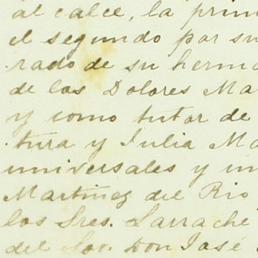 al calce, la prim
el segundo por su
rado de su herma
de los Dolores Ma
y como tutor de
tura y Julia Ma
universales y un
Martinez del Rio
los Sres. Larrache
del Sor. Don José